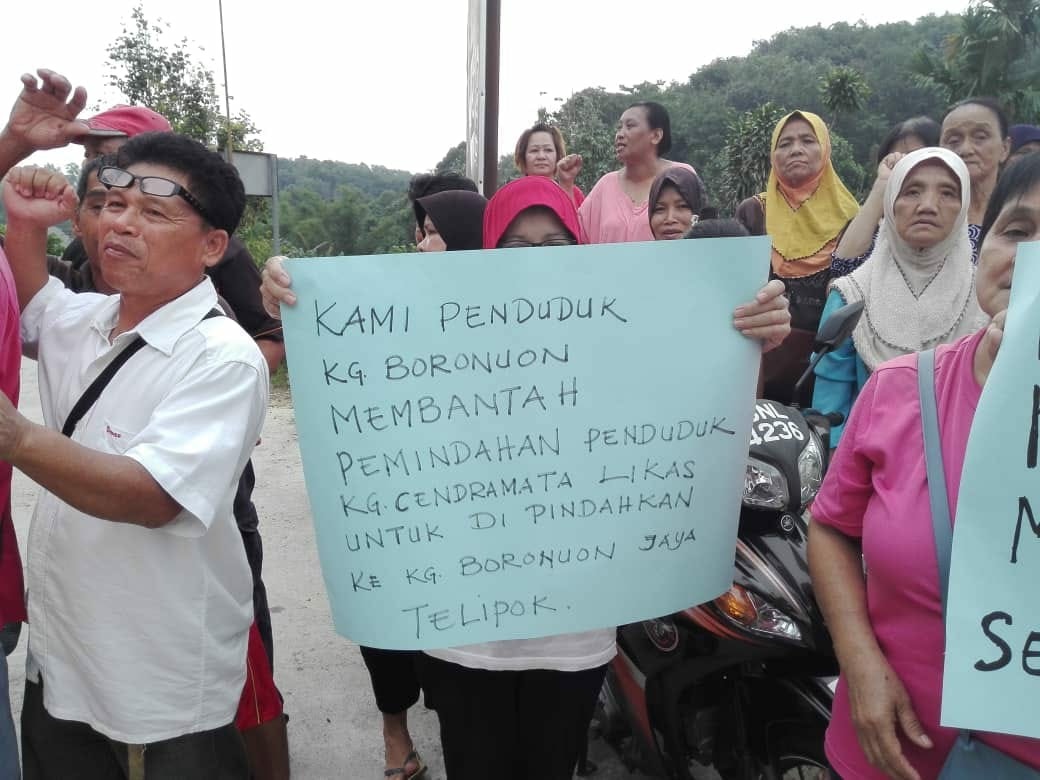 KAMI PENDUDUK
KG. BORONUON
MEMBANTAH
PEMINDAHAN PENDUDUK
KG. CENDRAMATA LIKAS
UNTUK DI PINDAHKAN
KE KG. BORONUON JAYA
TELIPOK.
4236
M
SE